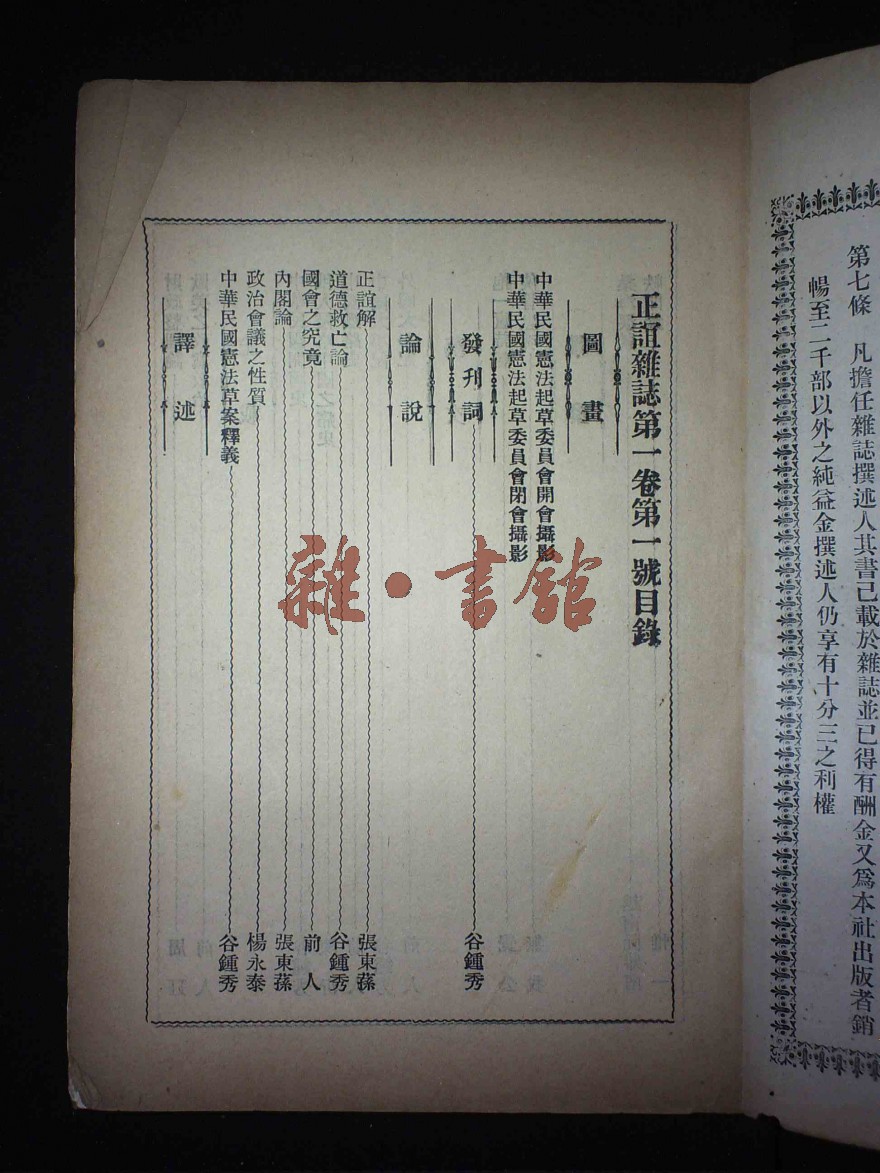 第七條　凡擔任雜誌撰述人其書已載於雜誌並已得有酬金又爲本社出版者銷
暢至二千部以外之純益金撰述人仍享有十分三之利權
正誼雜誌第一卷第一號目錄
圖畫
中華民國憲法起草委員會開會攝影
中華民國憲法起草委員會閉會攝影
發刊詞　谷鍾秀
論說
正誼解　張東蓀
道德救亡論　谷鍾秀
國會之究竟　前人
內閣論　張東蓀
政治會議之性質　楊永泰
中華民國憲法草案釋義　谷鍾秀
譯述
雜·書館